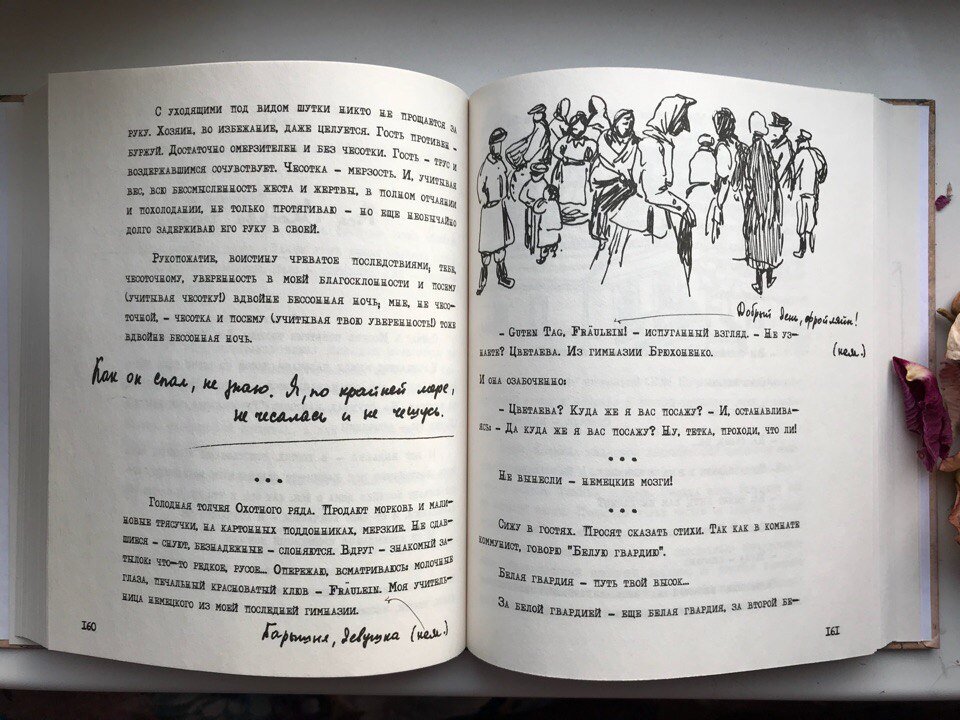 С УХОДЯЩИМИ ПОД ВИДОМ ШУТКИ НИКТО НЕ ПРОЩАЕТСЯ ЗА
РУКУ. ХОЗЯИН, ВО ИЗБЕЖАНИЕ, ДАЖЕ ЦЕЛУЕТСЯ. ГОСТЬ ПРОТИВЕН –
БУРЖУЙ. ДОСТАТОЧНО ОМЕРЗИТЕЛЕН И БЕЗ ЧЕСОТКИ. ГОСТЬ – ТРУС И
ВОЗДЕРЖАВШИМСЯ СОЧУВСТВУЕТ. ЧЕСОТКА – МЕРЗОСТЬ. И, УЧИТЫВАЯ
ВЕС, ВСЮ БЕССМЫСЛЕННОСТЬ ЖЕСТА И ЖЕРТВЫ, В ПОЛНОМ ОТЧАЯНИИ
И ПОХОЛОДАНИИ, НЕ ТОЛЬКО ПРОТЯГИВАЮ – НО ЕЩЕ НЕОБЫЧАЙНО
ДОЛГО ЗАДЕРЖИВАЮ ЕГО РУКУ В СВОЕЙ.
РУКОПОЖАТИЕ, ВОИСТИНУ ЧРЕВАТОЕ ПОСЛЕДСТВИЯМИ: ТЕБЕ,
ЧЕСОТОЧНОМУ, УВЕРЕННОСТЬ В МОЕЙ БЛАГОСКЛОННОСТИ И ПОСЕМУ
(УЧИТЫВАЯ ЧЕСОТКУ!) ВДВОЙНЕ БЕССОННАЯ НОЧЬ; МНЕ, НЕ ЧЕСО-
ТОЧНОЙ, – ЧЕСОТКА И ПОСЕМУ (УЧИТЫВАЯ ТВОЮ УВЕРЕННОСТЬ!) ТОЖЕ
ВДВОЙНЕ БЕССОННАЯ НОЧЬ.
Как он спал, не знаю. Я, по крайней мере,
не чесалась и не чешусь.
• • •
ГОЛОДНАЯ ТОЛЧЕЯ ОХОТНОГО РЯДА. ПРОДАЮТ МОРКОВЬ И МАЛИ-
НОВЫЕ ТРЯСУЧКИ, НА КАРТОННЫХ ПОДДОННИКАХ, МЕРЗКИЕ. НЕ СДАВ-
ШИЕСЯ – СНУЮТ, БЕЗНАДЕЖНЫЕ – СЛОНЯЮТСЯ. ВДРУГ – ЗНАКОМЫЙ ЗА-
ТЫЛОК: ЧТО-ТО РЕДКОЕ, РУСОЕ... ОПЕРЕЖАЮ, ВСМАТРИВАЮСЬ: МОЛОЧНЫЕ
ГЛАЗА, ПЕЧАЛЬНЫЙ КРАСНОВАТЫЙ КЛЮВ – FRÄULEIN. МОЯ УЧИТЕЛЬ-
НИЦА НЕМЕЦКОГО ИЗ МОЕЙ ПОСЛЕДНЕЙ ГИМНАЗИИ.
160
Барышня, девушка (нем.)
Добрый день, фройляйн!
(нем.)
– GUTEN TAG, FRÄULEIN! – ИСПУГАННЫЙ ВЗГЛЯД. – НЕ УЗ-
НАЕТЕ? ЦВЕТАЕВА. ИЗ ГИМНАЗИИ БРЮХОНЕНКО.
И ОНА ОЗАБОЧЕННО:
– ЦВЕТАЕВА? КУДА ЖЕ Я ВАС ПОСАЖУ? – И, ОСТАНАВЛИВА-
ЯСЬ: – ДА КУДА ЖЕ Я ВАС ПОСАЖУ? НУ, ТЕТКА, ПРОХОДИ, ЧТО ЛИ!
• • •
НЕ ВЫНЕСЛИ – НЕМЕЦКИЕ МОЗГИ!
• • •
СИЖУ В ГОСТЯХ. ПРОСЯТ СКАЗАТЬ СТИХИ. ТАК КАК В КОМНАТЕ
КОММУНИСТ, ГОВОРЮ "БЕЛУЮ ГВАРДИЮ".
БЕЛАЯ ГВАРДИЯ – ПУТЬ ТВОЙ ВЫСОК...
ЗА БЕЛОЙ ГВАРДИЕЙ – ЕЩЕ БЕЛАЯ ГВАРДИЯ, ЗА ВТОРОЙ БЕ-
161